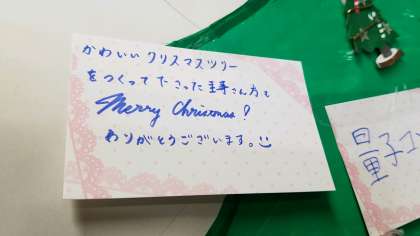 かわいい クリスマスツリー
をつくって下さった皆さん方も
Merry Christmas!
ありがとうございます。
量子コ